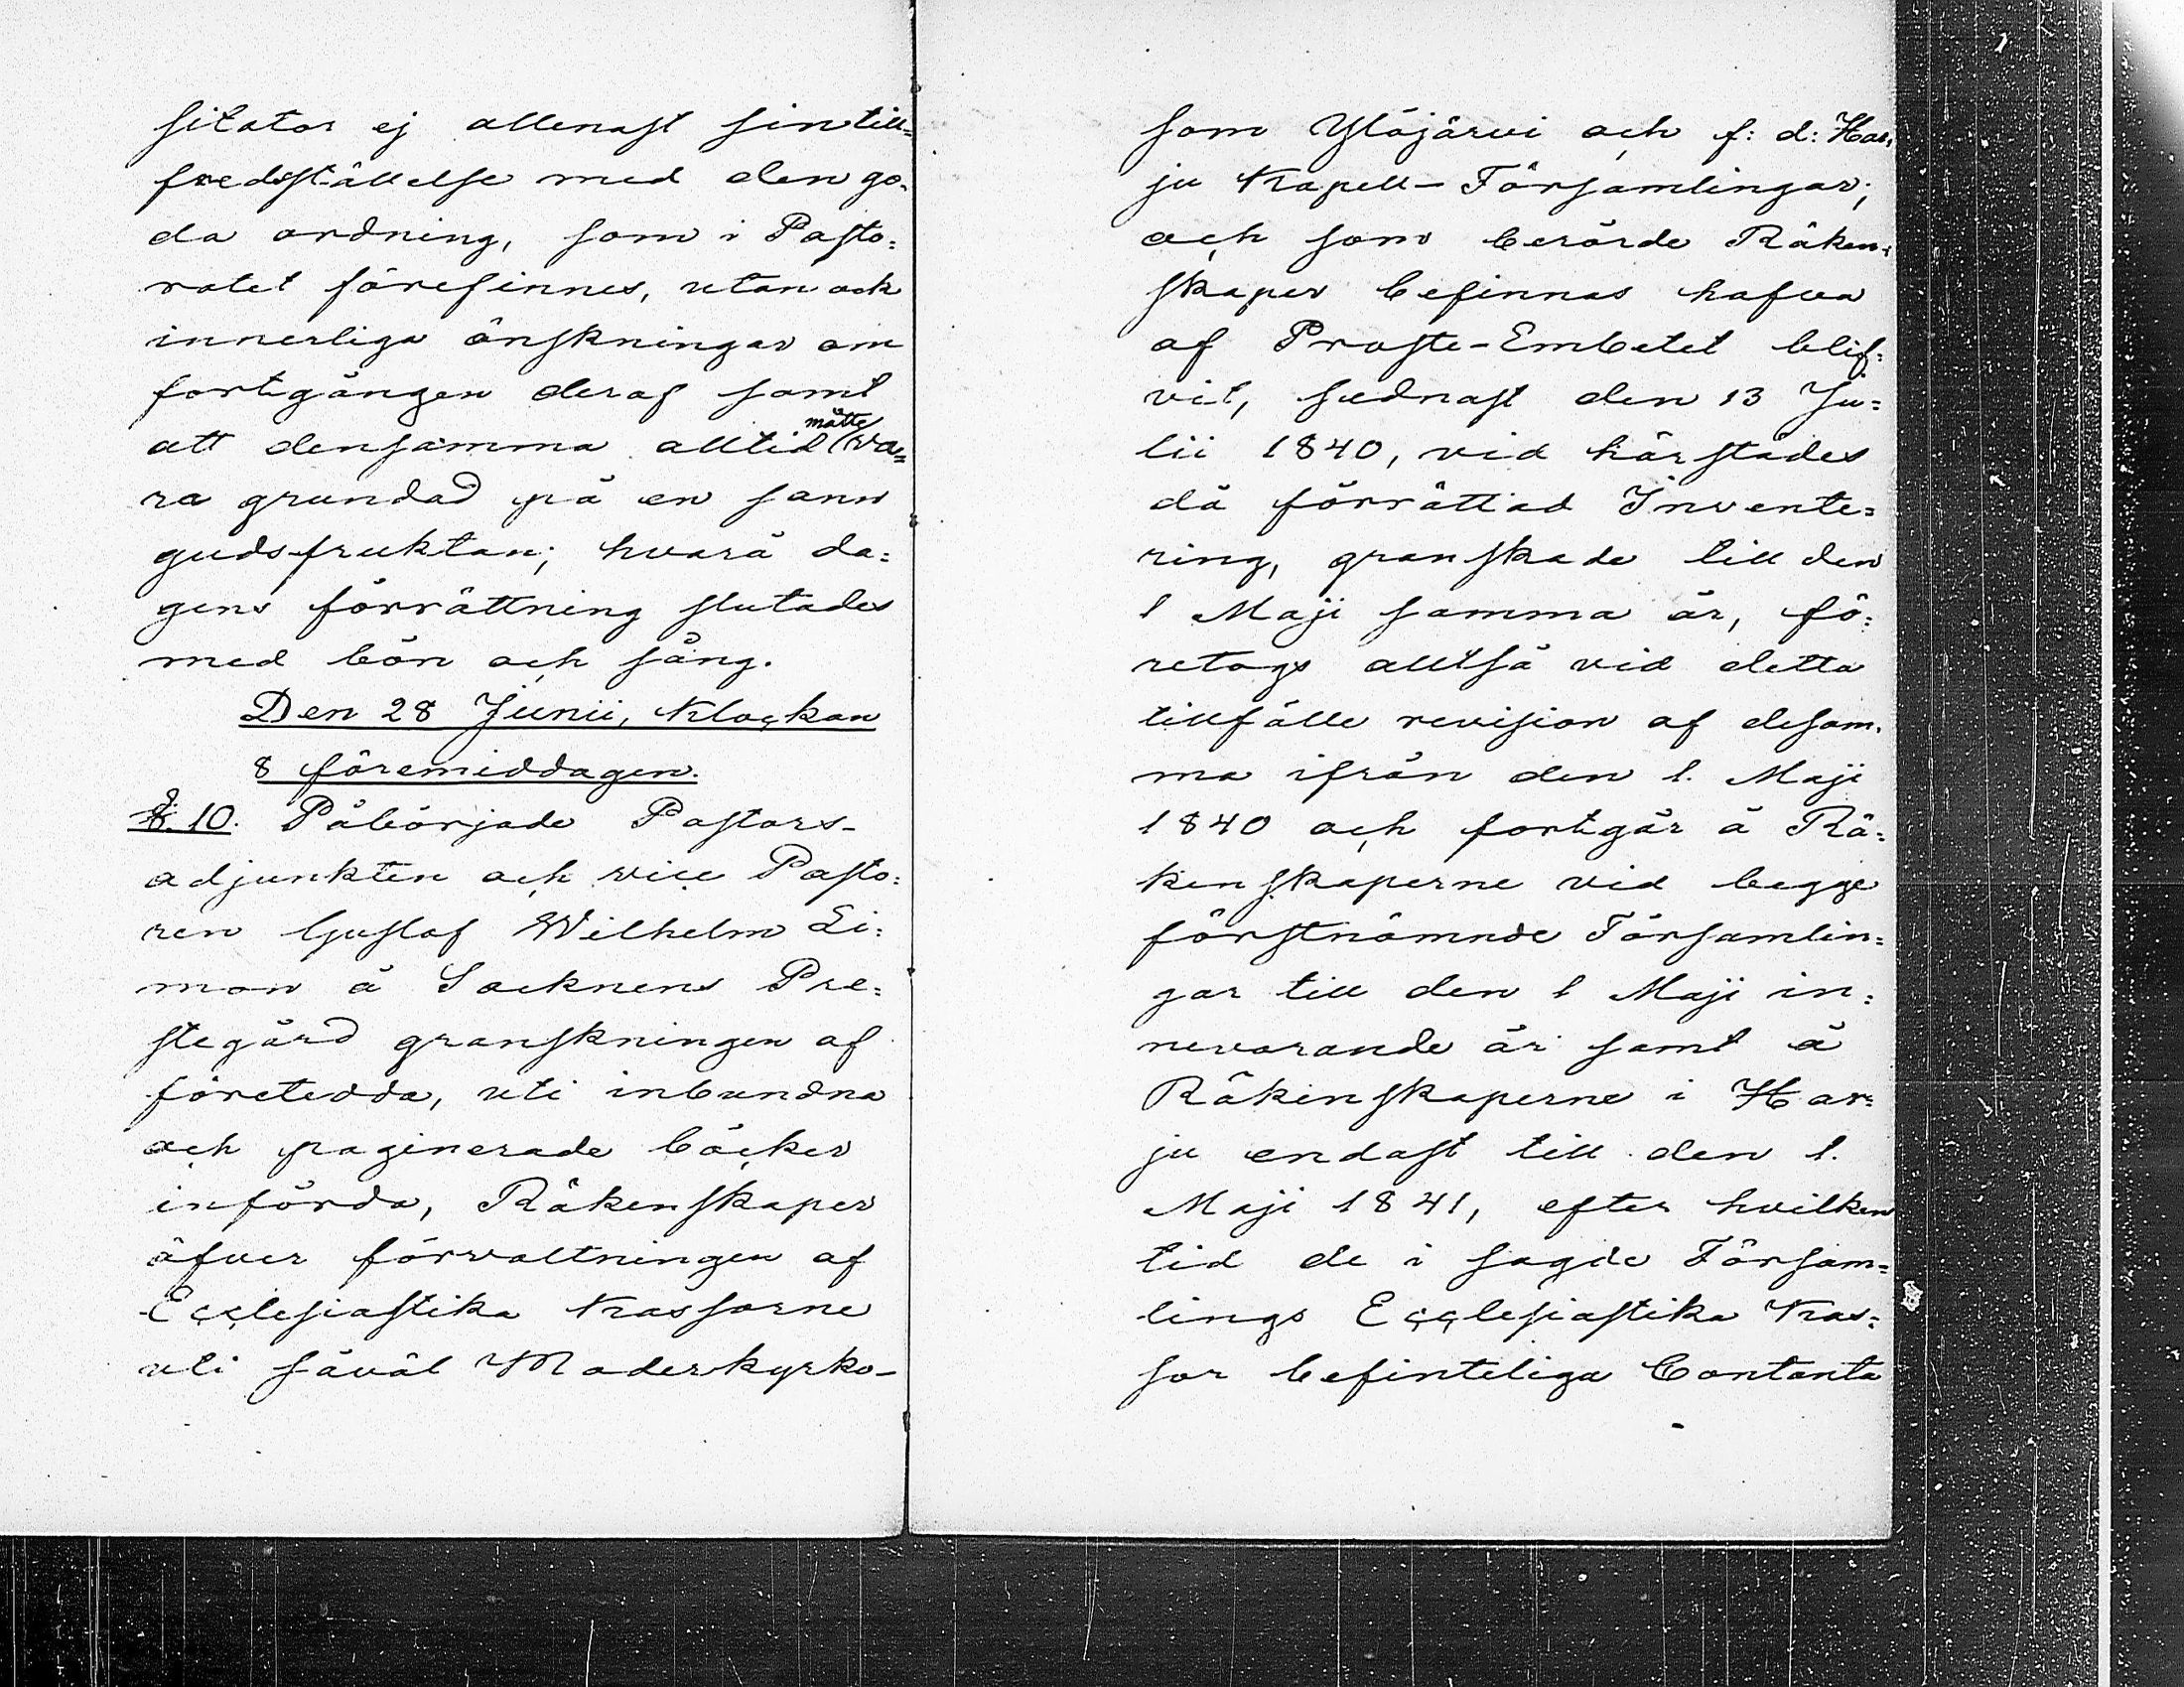 sitator ej allenast sin till=
fredsställelse med den go=
da ordning, som i Pasto=
ratet förefinnes, utan ock
innerliga önskningar om
fortgången deraf samt
att densamma alltid måtte va=
ra grundad på en sann
gudsfruktan; hvarå da=
gens förrättning slutades
med bön och sång.
Den 28 Junii, Klockan
8 föremiddagen.
§. 10. Påbörjade Pastors-
adjunkten och vice Pasto=
ren Gustaf Wilhelm Li=
mon å Socknens Pre=
stegård granskningen af
företedda, uti inbundna
och paginerade böcker
införda, Räkenskaper
öfver förvaltningen af
Ecclesiastika Kassorne
uti såväl Moderkyrko-
som Ylöjärvi och f: d: Har=
ju Kapell-Församlingar;
och som berörde Räken=
skaper befinnas hafva
af Proste-Embetet blif=
vit, sednast den 13 Ju=
lii 1840, vid härstädes
då förrättad Invente=
ring, granskade till den
1 Maji samma år, fö=
retogs alltså vid detta
tillfälle revision af desam=
ma ifrån den 1. Maji
1840 och fortgår å Rä=
kenskaperne vid begge
förstnämnde Församlin=
gar till den 1 Maji in=
nevarande år samt å
Räkenskaperne i Har=
ju endast till den 1.
Maji 1841, efter hvilken
tid de i sagde Försam=
lings Ecclesiastika Kas=
sor befinteliga Contanta